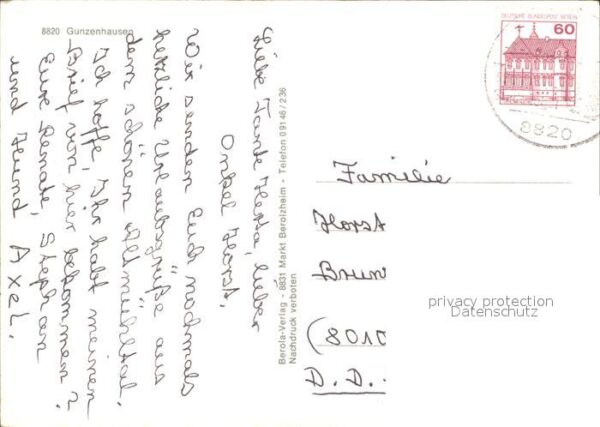 8820 Gunzenhausen
Liebe Tante Herta, lieber
Onkel Horst,
Wir senden Euch nochmals
herzliche Urlaubsgrüße aus
dem schönen Altmühltal.
Ich hoffe, Ihr habt meinen
Brief von hier bekommen?
Eure Renate, Stephan
und Hund Axel.
Berola-Verlag - 8831 Markt Berolzheim - Telefon 09146/236
Nachdruck verboten
DEUTSCHE BUNDESPOST BERLIN
60
8820
Familie
Horst
Brun
(801
D.D.
privacy protection
Datenschutz